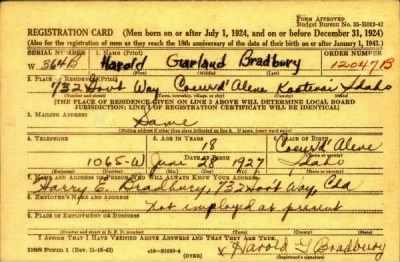 FORM APPROVED
Budget Bureau No. 33-R1012-42
REGISTRATION CARD—(Men born on or after July 1, 1924, and on or before December 31, 1924)
(Also for the registration of men as they reach the 18th anniversary of the date of their birth on or after January 1, 1943.)
SERIAL NUMBER 1. NAME (Print) ORDER NUMBER
W 364B Harold Garland Bradbury 12047B
(First) (Middle) (Last)
2. PLACE OF RESIDENCE (Print)
732 Hoyt Way Coeur d'Alene Kootenai Idaho
(Number and street) (Town, township, village, or city) (County) (State)
[THE PLACE OF RESIDENCE GIVEN ON LINE 2 ABOVE WILL DETERMINE LOCAL BOARD
JURISDICTION; LINE 2 OF REGISTRATION CERTIFICATE WILL BE IDENTICAL]
3. MAILING ADDRESS
Same
(Mailing address if other than place indicated on line 2. If same, insert word same)
4. TELEPHONE 5. AGE IN YEARS 6. PLACE OF BIRTH
18 Coeur d'Alene
DATE OF BIRTH
1065-W June 28 1927 Idaho
(Exchange) (Number) (Mo.) (Day) (Yr.) (State or country)
7. NAME AND ADDRESS OF PERSON WHO WILL ALWAYS KNOW YOUR ADDRESS
Harry E. Bradbury, 732 Hoyt Way, Cda
8. EMPLOYER'S NAME AND ADDRESS
Not employed at present
9. PLACE OF EMPLOYMENT OR BUSINESS
(Number and street or R. F. D. number) (Town) (County) (State)
I AFFIRM THAT I HAVE VERIFIED ABOVE ANSWERS AND THAT THEY ARE TRUE.
DSS Form 1 (Rev. 11-16-42) x Harold G Bradbury